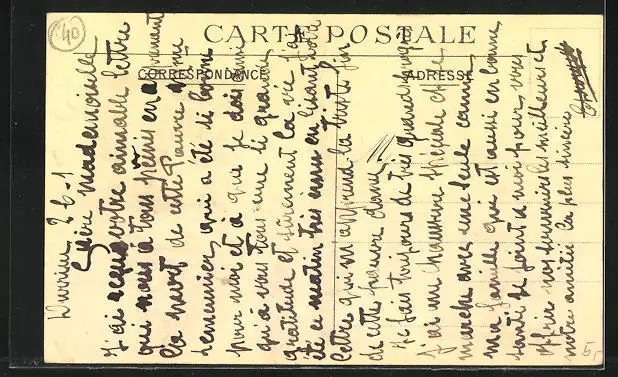 40
CARTE POSTALE
CORRESPONDANCE
ADRESSE
26-1
Chère Mademoiselle
J'ai reçu votre aimable lettre
qui nous a tous peinés en apprenant
la mort de cette pauvre Mme
qui a été si bonne
pour moi et à qui je dois ainsi
qu'à vous tous une si grande
gratitude et sûrement la vie. J'ai
été ce matin très ému en lisant votre
lettre qui m'apprend la triste fin
de cette pauvre dame.
Je fais toujours de très grands progrès
J'ai une chaussure spéciale et je
marche avec une seule canne
ma famille qui est aussi en bonne
santé se joint à moi pour vous
offrir nos souvenirs les meilleurs et
notre amitié la plus sincère